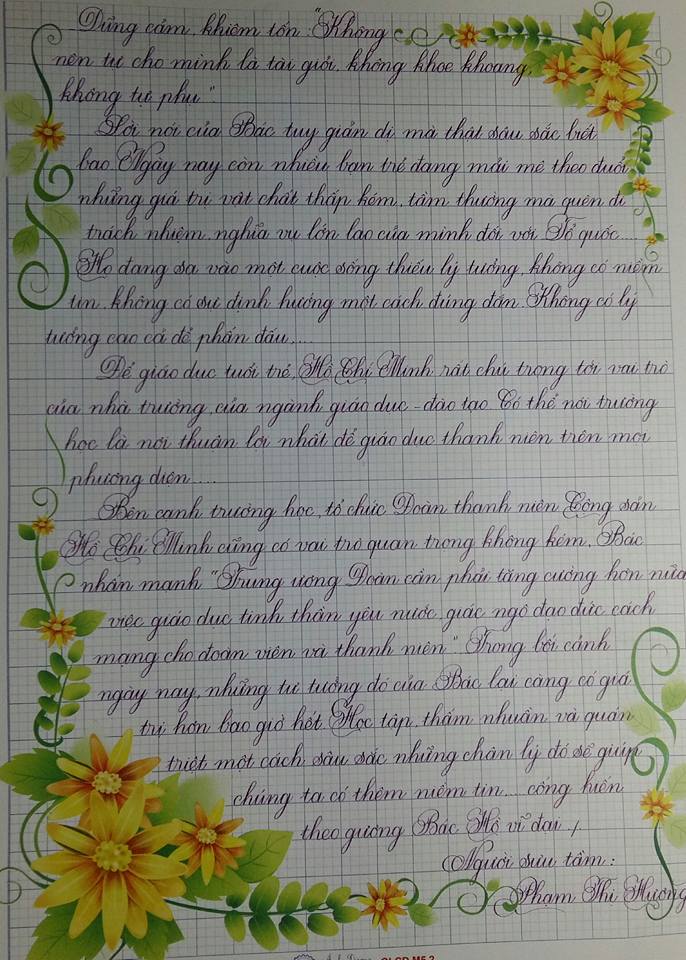 Dũng cảm, khiêm tốn: "Không
nên tự cho mình là tài giỏi, không khoe khoang,
không tự phụ".
Lời nói của Bác tuy giản dị mà thật sâu sắc biết
bao. Ngày nay còn nhiều bạn trẻ đang mải mê theo đuổi
những giá trị vật chất thấp kém, tầm thường mà quên đi
trách nhiệm, nghĩa vụ lớn lao của mình đối với Tổ quốc....
Họ đang sa vào một cuộc sống thiếu lý tưởng, không có niềm
tin, không có sự định hướng một cách đúng đắn. Không có lý
tưởng cao cả để phấn đấu....
Để giáo dục tuổi trẻ, Hồ Chí Minh rất chú trọng tới vai trò
của nhà trường, của ngành giáo dục - đào tạo. Có thể nói trường
học là nơi thuận lợi nhất để giáo dục thanh niên trên mọi
phương diện....
Bên cạnh trường học, tổ chức Đoàn thanh niên Cộng sản
Hồ Chí Minh cũng có vai trò quan trọng không kém. Bác
nhấn mạnh "Trung ương Đoàn cần phải tăng cường hơn nữa
việc giáo dục tinh thần yêu nước, giác ngộ đạo đức cách
mạng cho đoàn viên và thanh niên". Trong bối cảnh
ngày nay, những tư tưởng đó của Bác lại càng có giá
trị hơn bao giờ hết. Học tập, thấm nhuần và quán
triệt một cách sâu sắc những chân lý đó sẽ giúp
chúng ta có thêm niềm tin.... cống hiến
theo gương Bác Hồ vĩ đại./.
Người sưu tầm:
Phạm Thị Hương